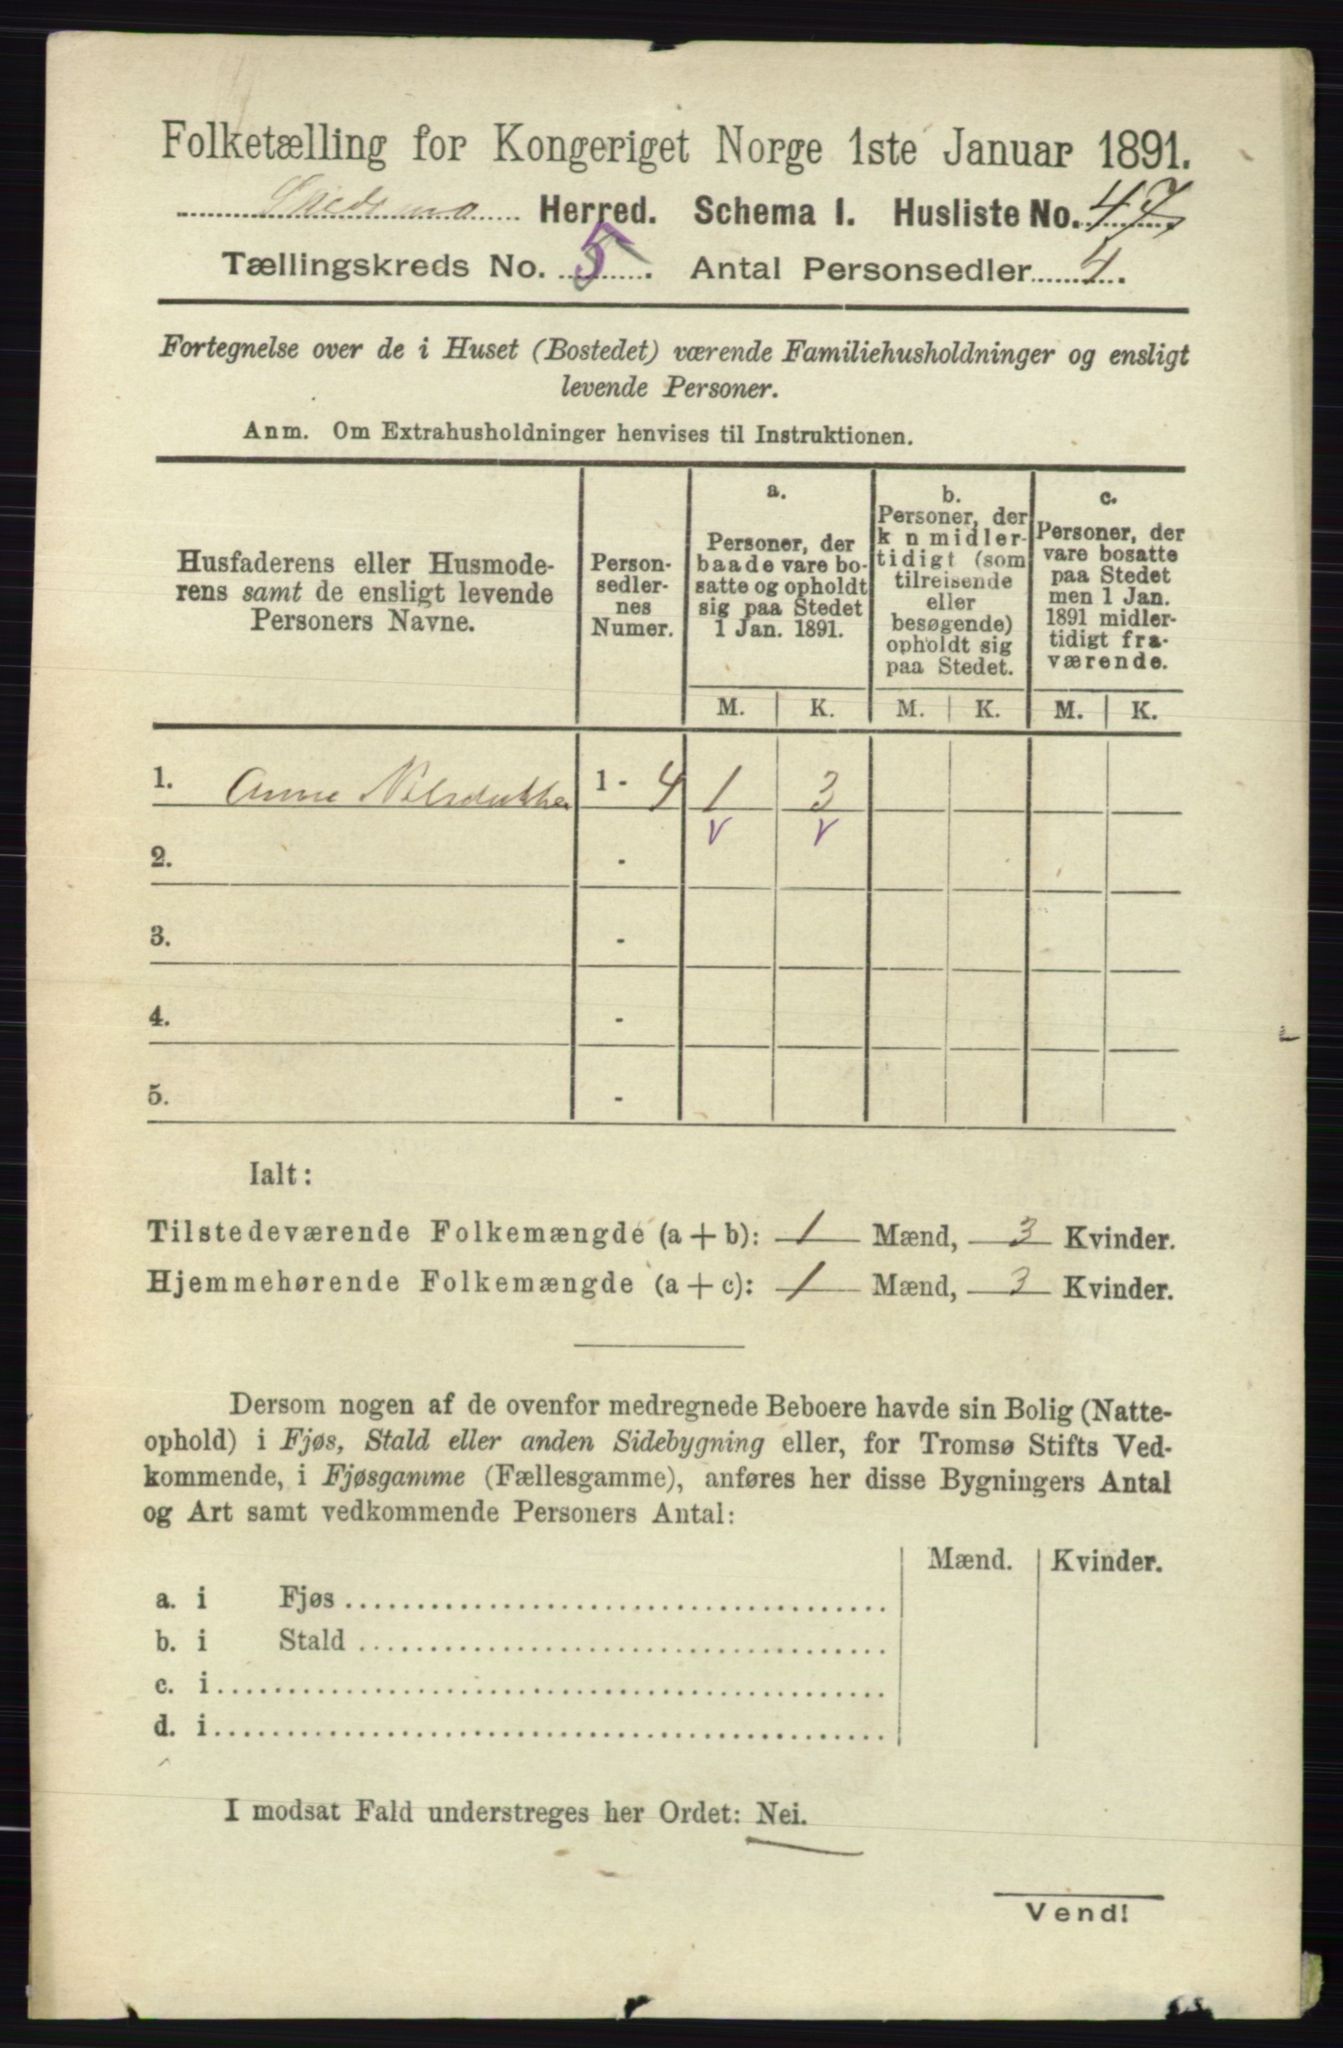 Folketælling for Kongeriget Norge 1ste Januar 1891.
Skedsmo Herred. Schema I. Husliste No. 47
Tællingskreds No. 5. Antal Personsedler 4.
Fortegnelse over de i Huset (Bostedet) værende Familiehusholdninger og ensligt
levende Personer.
Anm. Om Extrahusholdninger henvises til Instruktionen.
Husfaderens eller Husmode-
rens samt de ensligt levende
Personers Navne.
Person-
sedler-
nes
Numer.
a.
Personer, der
baade vare bo-
satte og opholdt
sig paa Stedet
1 Jan. 1891.
b.
Personer, der
k n midler-
tidigt (som
tilreisende
eller
besøgende)
opholdt sig
paa Stedet.
c.
Personer, der
vare bosatte
paa Stedet
men 1 Jan.
1891 midler-
tidigt fra-
værende.
M. K. M. K. M. K.
1. Anne Nilsdatter 1 - 4 1 3
2. -
3. -
4. -
5. -
Ialt:
Tilstedeværende Folkemængde (a + b): 1 Mænd, 3 Kvinder.
Hjemmehørende Folkemængde (a + c): 1 Mænd, 3 Kvinder.
Dersom nogen af de ovenfor medregnede Beboere havde sin Bolig (Natte-
ophold) i Fjøs, Stald eller anden Sidebygning eller, for Tromsø Stifts Ved-
kommende, i Fjøsgamme (Fællesgamme), anføres her disse Bygningers Antal
og Art samt vedkommende Personers Antal:
Mænd. Kvinder.
a. i Fjøs
b. i Stald
c. i
d. i
I modsat Fald understreges her Ordet: Nei.
Vend!